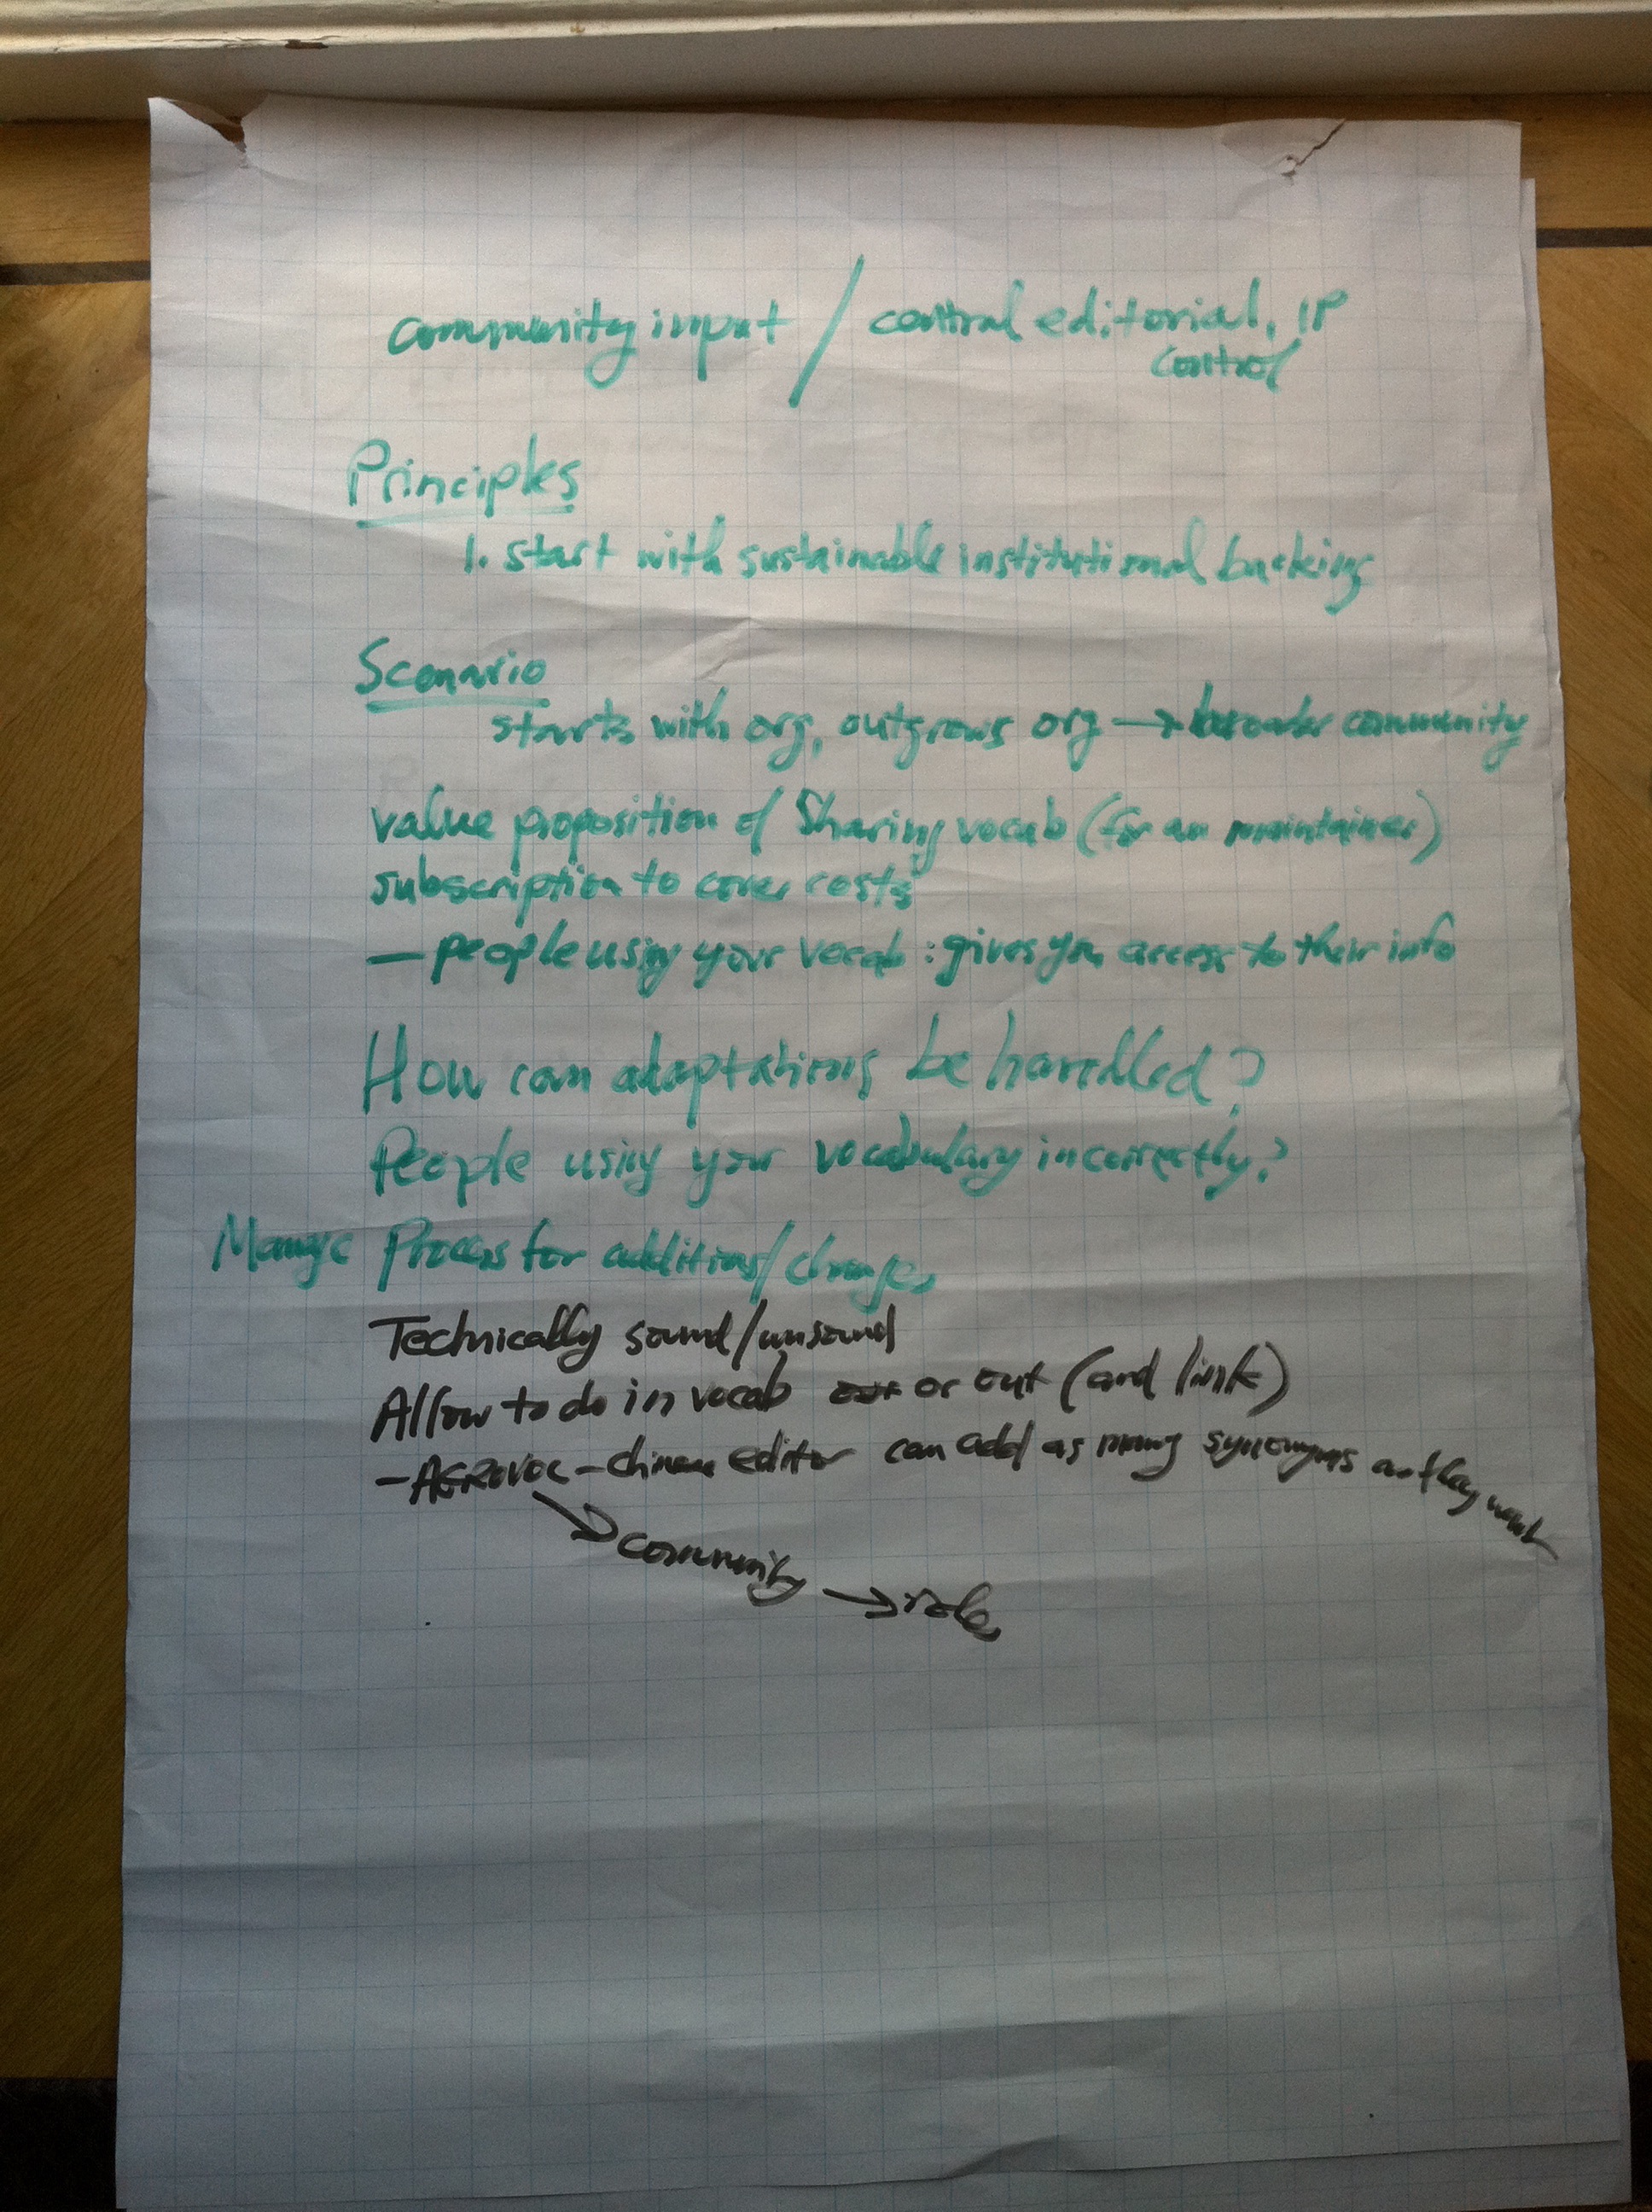 community input / central editorial, IP
control
Principles
1. start with sustainable institutional backing
Scenario
starts with org, outgrows org → broader community
value proposition of Sharing vocab (for an maintainer)
subscription to cover costs
— people using your vocab : gives you access to their info
How can adaptations be handled?
People using your vocabulary incorrectly?
Manage Process for additions/changes
Technically sound/unsound
Allow to do in vocab or out (and link)
- AGROVOC - Chinese editor can add as many synonyms as they want
→ community → role